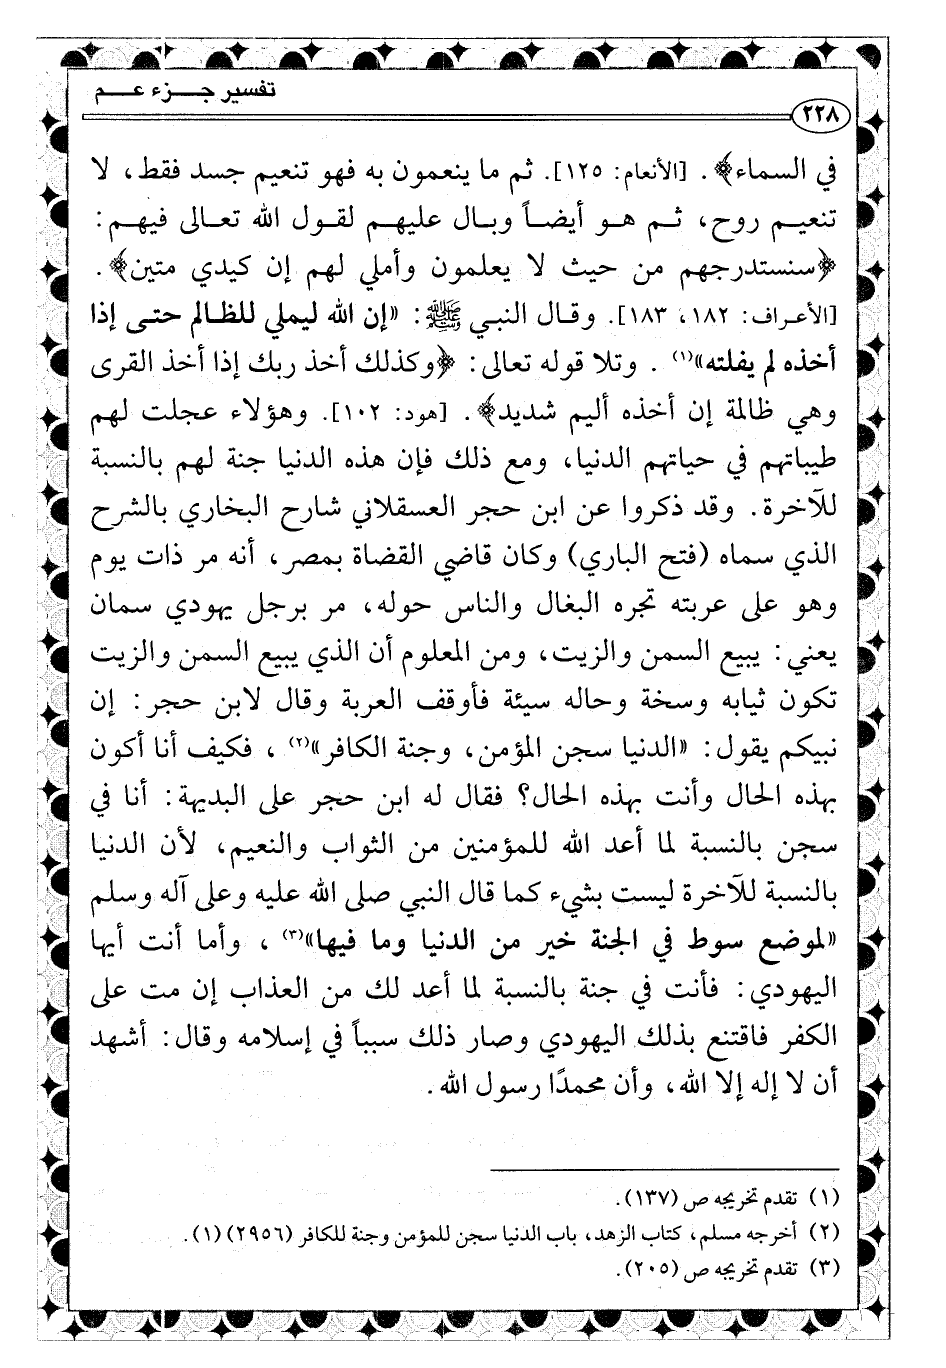 تفسير جـــزء عـــم
٢٢٨
في السماء﴾. [الأنعام: ١٢٥]. ثم ما ينعمون به فهو تنعيم جسد فقط، لا
تنعيـم روح، ثـم هـو أيضـاً وبـال عليهـم لقـول الله تعـالى فيهـم:
﴿سنستدرجهم من حيث لا يعلمون وأملي لهم إن كيدي متين﴾.
[الأعـراف: ١٨٢، ١٨٣]. وقـال النبـي ﷺ: «إن الله ليملي للظالم حتـى إذا
أخذه لم يفلته»(١). وتلا قوله تعالى: ﴿وكذلك أخذ ربك إذا أخذ القرى
وهي ظالمة إن أخذه أليم شديد﴾. [هود: ١٠٢]. وهؤلاء عجلت لهم
طيباتهم في حياتهم الدنيا، ومع ذلك فإن هذه الدنيا جنة لهم بالنسبة
للآخرة. وقد ذكروا عن ابن حجر العسقلاني شارح البخاري بالشرح
الذي سماه (فتح الباري) وكان قاضي القضاة بمصر، أنه مر ذات يوم
وهو على عربته تجره البغال والناس حوله، مر برجل يهودي سمان
يعني: يبيع السمن والزيت، ومن المعلوم أن الذي يبيع السمن والزيت
تكون ثيابه وسخة وحاله سيئة فأوقف العربة وقال لابن حجر: إن
نبيكم يقول: «الدنيا سجن المؤمن، وجنة الكافر»(٢)، فكيف أنا أكون
بهذه الحال وأنت بهذه الحال؟ فقال له ابن حجر على البديهة: أنا في
سجن بالنسبة لما أعد الله للمؤمنين من الثواب والنعيم، لأن الدنيا
بالنسبة للآخرة ليست بشيء كما قال النبي صلى الله عليه وعلى آله وسلم
«لموضع سوط في الجنة خير من الدنيا وما فيها»(٣)، وأما أنت أيها
اليهودي: فأنت في جنة بالنسبة لما أعد لك من العذاب إن مت على
الكفر فاقتنع بذلك اليهودي وصار ذلك سبباً في إسلامه وقال: أشهد
أن لا إله إلا الله، وأن محمدًا رسول الله.
(١) تقدم تخريجه ص (١٣٧).
(٢) أخرجه مسلم، كتاب الزهد، باب الدنيا سجن للمؤمن وجنة للكافر (٢٩٥٦) (١).
(٣) تقدم تخريجه ص (٢٠٥).